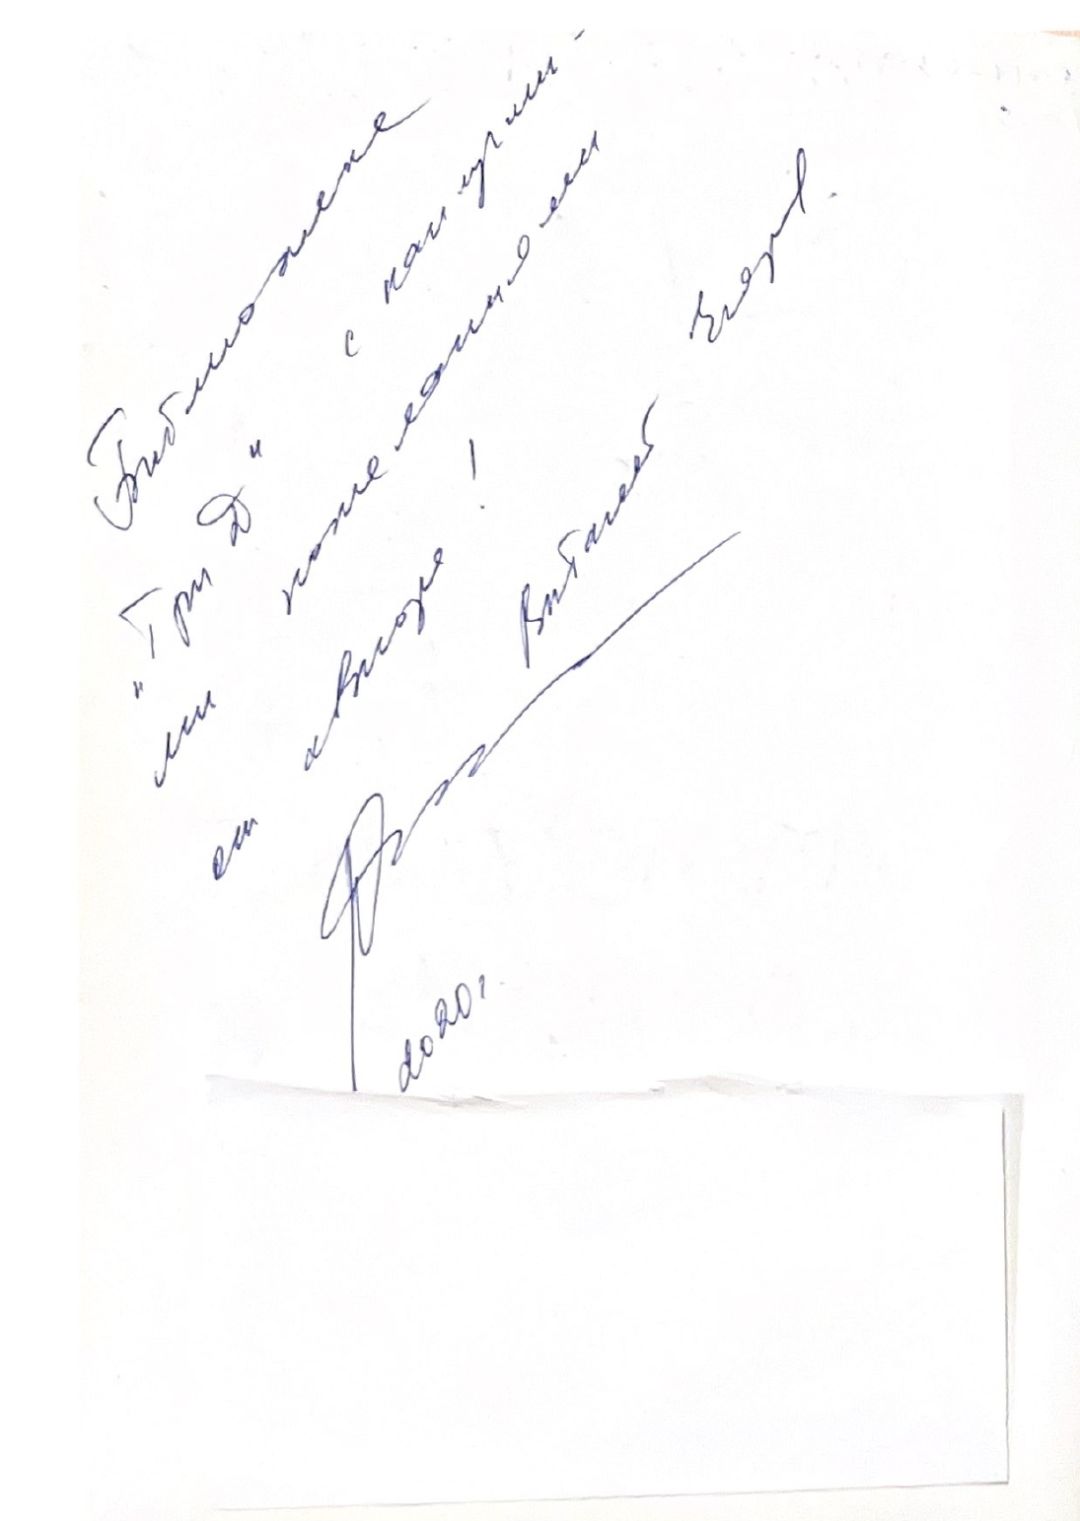 Библиотеке
"Три Д" с наилучши-
ми пожеланиями
от автора!
Виталий Егоров.
2020 г.